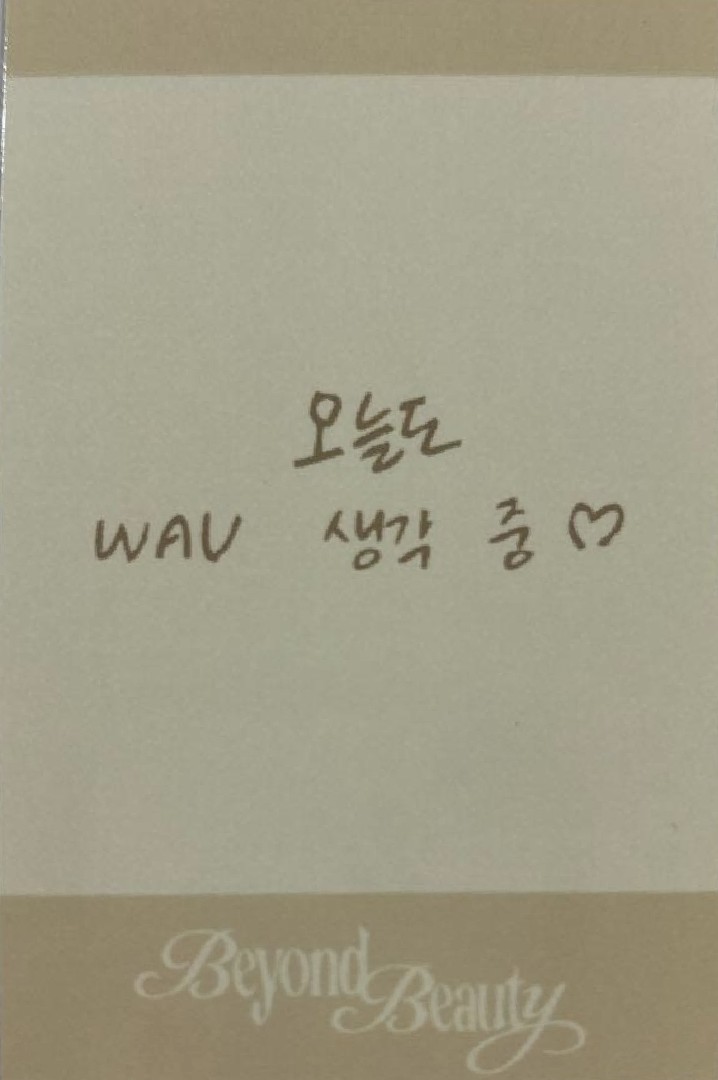 오늘도
WAV 생각 중♡
Beyond Beauty